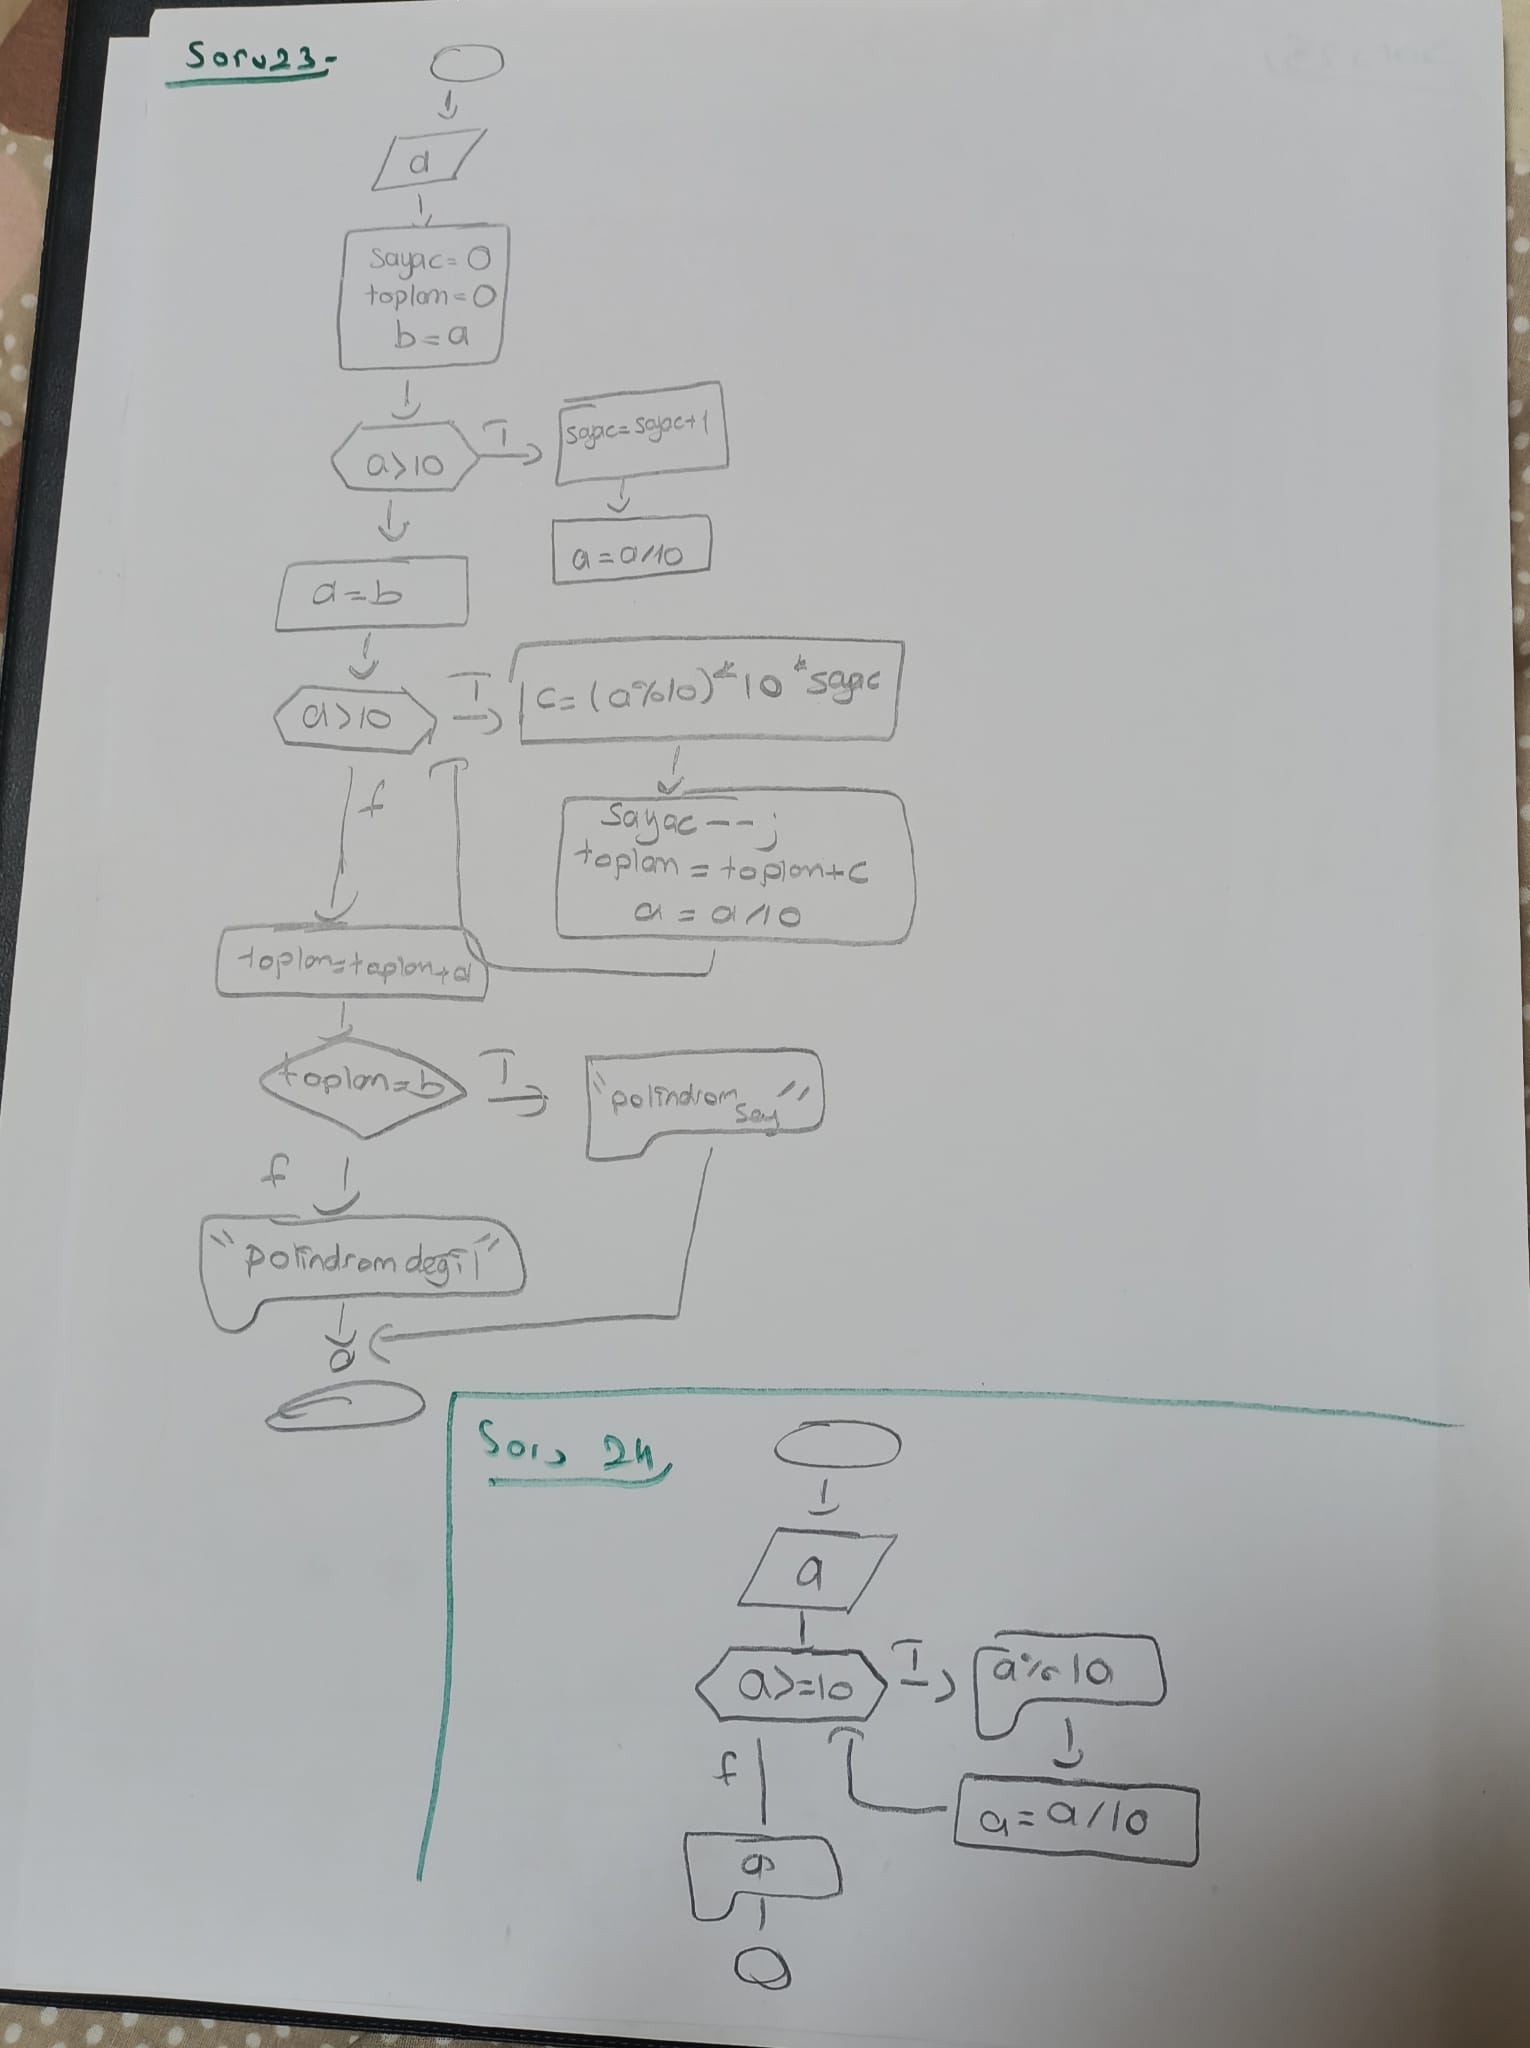 Soru23-
a
Sayac=0
toplam=0
b=a
a>10
T
sayac=sayac+1
a=a/10
a=b
a>10
T
c=(a%10)*10*sayac
f
Sayac--;
toplam=toplam+c
a=a/10
toplam=toplam+a
toplam=b
T
"polindrom
say"
f
"polindrom degil"
Soru 24
a
a>=10
T
a%10
f
a=a/10
a